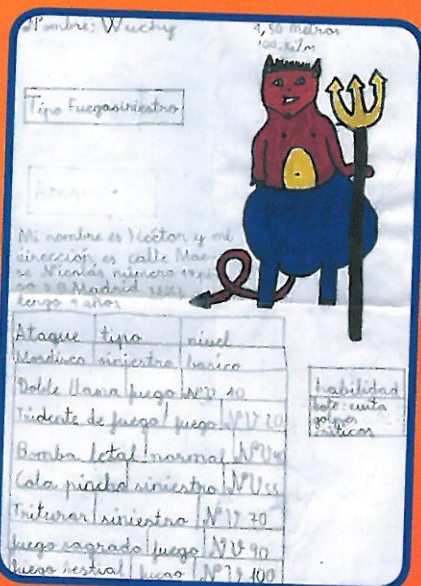 Nombre: Wuchy
1,50 metros
Tipo Fuego siniestro
Mi nombre es Héctor y mi
dirección es calle
número
Madrid
tengo 9 años
Ataque tipo nivel
Mordisco siniestro basico
Doble llama fuego NV 10
Tridente de fuego fuego NV 20
Bomba letal normal NV
Cola pincho siniestro NV 55
Triturar siniestro NV 70
fuego sagrado fuego NV 90
fuego fuego NV 100
habilidad
evita
golpes
criticos